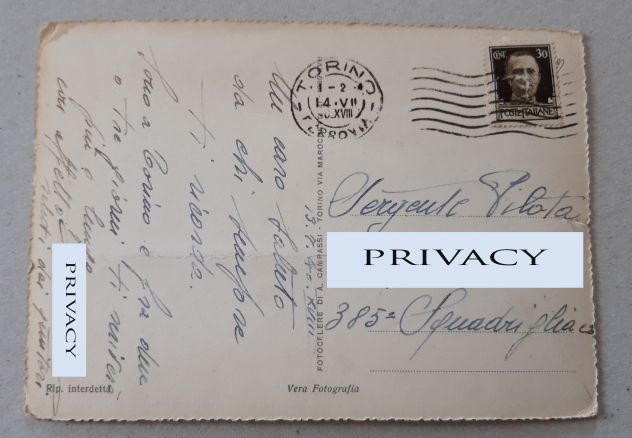 Un caro saluto
da chi sempre
ti ricorda.
Sono a Torino e fra due
o tre giorni ti
PRIVACY
saluti dai genitori
Rip. interdetta
Vera Fotografia
FOTOCELERE DI A. CAMPASSI - TORINO VIA MAROCC
TORINO
1-2
14.VII
XVIII
FERROVIA
CENT. 30
POSTE ITALIANE
13.7.40.XVIII
Sergente Pilota
PRIVACY
385ª Squadriglia